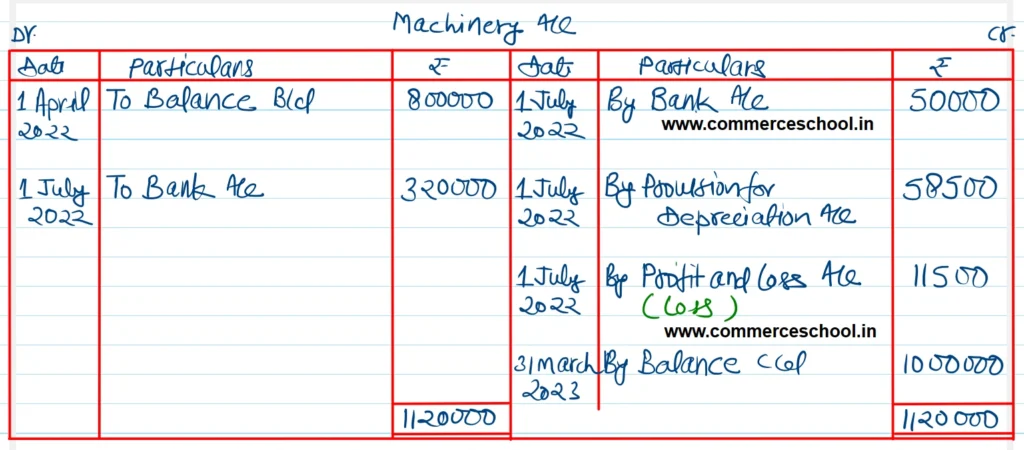 Machinery A/c
Dr. Cr.
Date Particulars ₹ Date Particulars ₹
1 April 2022 To Balance B/d 800000 1 July 2022 By Bank A/c 50000
www.commerceschool.in
1 July 2022 To Bank A/c 320000 1 July 2022 By Provision for Depreciation A/c 58500
1 July 2022 By Profit and Loss A/c (Loss) 11500
www.commerceschool.in
31 March 2023 By Balance C/d 1000000
1120000 1120000